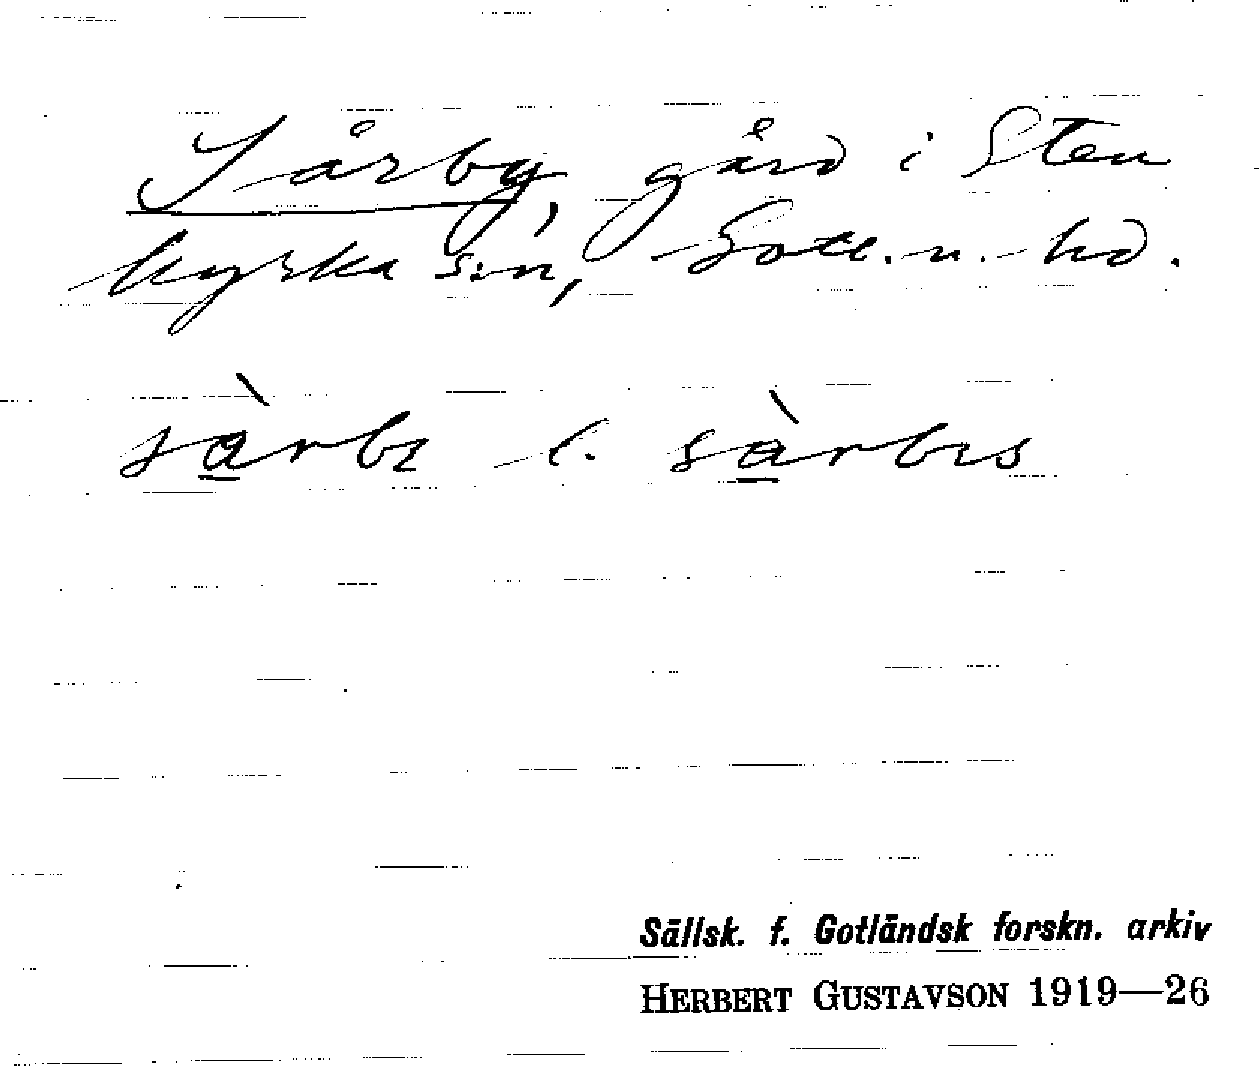 Sårby, gård i Sten
kyrka s:n, Gotl. n. hd.
sàrbɩ l. sàrbɩs
Sällsk. f. Gotländsk forskn. arkiv
HERBERT GUSTAVSON 1919—26